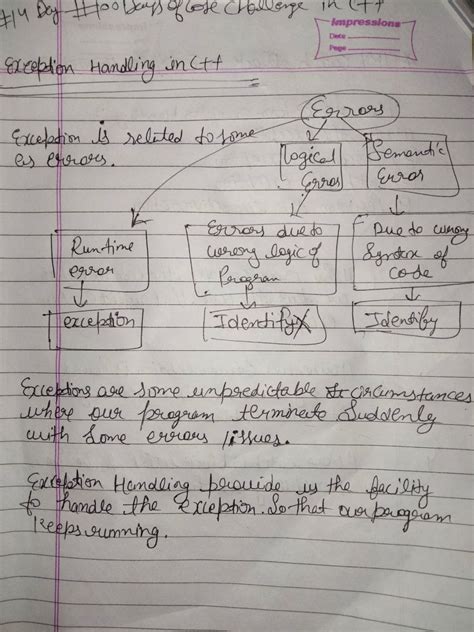 #14 Day #100Days of Code Challenge in C++
impressions
Date
Page
Exception Handling in C++
Errors
Exception is related to some
as errors.
Logical
Erros
Semantic
Erros
Runtime
error
Errors due to
wrong logic of
Program
Due to wrong
Syntax of
Code
exception
Identify X
Identify
Exceptions are some unpredictable circumstances
where our program terminate Suddenly
with some errors / issues.
Exception Handling provide us the facility
to handle the exception. So that our program
keeps running.